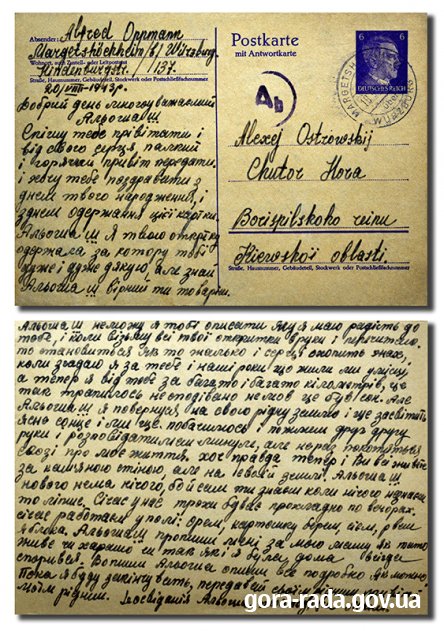 Absender: Alfred Oppmann
Margetshöchheim b/ Würzburg.
Wohnort, auch Zustell- oder Leitpostamt
Hindenburgstr. 137.
Straße, Hausnummer, Gebäudeteil, Stockwerk oder Postschließfachnummer
20/VIII-1943р.
Добрий день многоуважаємий
Альоша!!!
Спішу тебе привітати і
від свого серця, палкий
і горячий привіт передати.
і хочу тебе поздравити з
днем твого народження, і
з днем одержання цієї картки.
Альоша!!! Я твою открытку
одержала за котору тобі
дуже і дуже дякую, але знай
Альоша!!! вірний ти товариш.
Postkarte
mit Antwortkarte
6 6
DEUTSCHES REICH
MARGETSH
Ab
Alexej Ostrowskij
Chutor Hora
Borispilskoho reinu
Kiewskoï oblasti.
Straße, Hausnummer, Gebäudeteil, Stockwerk oder Postschließfachnummer
Альоша!!! не можу я тобі описати яку я маю радість до
тебе, і коли візьму всі твої открытки в руки і перечитаю.
то становиться так то жалько і серце охопить жах,
коли згадаю я за тебе і наші роки що жили ми улітку,
а тепер я від тебе за багато і багато кілометрів, це
так трапилось несподівано немов це був сен. Але
Альоша!!! Я повернуся, на свою рідну землю і ще засвітить
ясно сонце і ми ще побачимося і пожмем друг другу
руки, і розповідатимем минуле, але нераз покотяться
сльози про моє життя. хоч правда тепер і Ви всі живете
за камяною стіною, але на своїй землі. Альоша!!!
нового нема нічого, бо й сам ти знаєш коли нічого незнаєш
то ліпше. Січас у нас трохи буває прохладно по вечорах.
січас работаєм у полі: орем, картошку берем сієм, рвем
яблока. Альоша!!! пропиши мені за мою маму як вона
живе чи харашо чи так які я була дома всігда
спорився. Вопшим Альоша опиши все подробно як можно,
Пока я буду закінчувать, передавай своїм
моїм рідним. Досвіданія Альоша
gora-rada.gov.ua